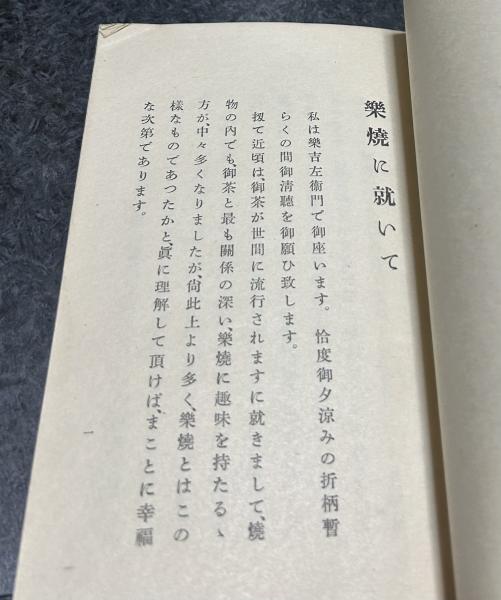 樂燒に就いて
私は樂吉左衞門で御座います。恰度御夕涼みの折柄暫
らくの間御淸聽を御願ひ致します。
扨て近頃は、御茶が世間に流行されますに就きまして、燒
物の內でも、御茶と最も關係の深い、樂燒に趣味を持たるゝ
方が、中々多くなりましたが、尙此上より多く、樂燒とはこの
樣なものであつたかと、眞に理解して頂けば、まことに幸福
な次第であります。
一